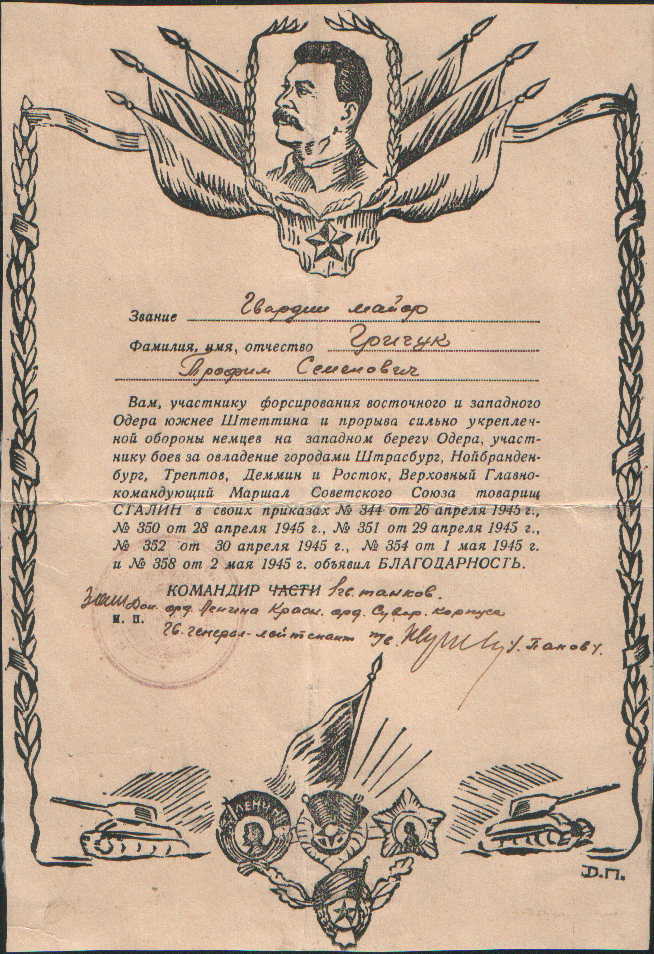 Звание Гвардии майор
Фамилия, имя, отчество Гричук
Трофим Семенович
Вам, участнику форсирования восточного и западного
Одера южнее Штеттина и прорыва сильно укреплен-
ной обороны немцев на западном берегу Одера, участ-
нику боев за овладение городами Штрасбург, Нойбранден-
бург, Трептов, Деммин и Росток, Верховный Главно-
командующий Маршал Советского Союза товарищ
СТАЛИН в своих приказах № 344 от 26 апреля 1945 г.,
№ 350 от 28 апреля 1945 г., № 351 от 29 апреля 1945 г.,
№ 352 от 30 апреля 1945 г., № 354 от 1 мая 1945 г.
и № 358 от 2 мая 1945 г. объявил БЛАГОДАРНОСТЬ.
КОМАНДИР ЧАСТИ 1 гв. танков.
Дон. орд. Ленина Красн. орд. Сувор. Корпуса
М. П.
Гв. генерал-лейтенант т/в. /Панов/.
ЛЕНИН
Д.П.